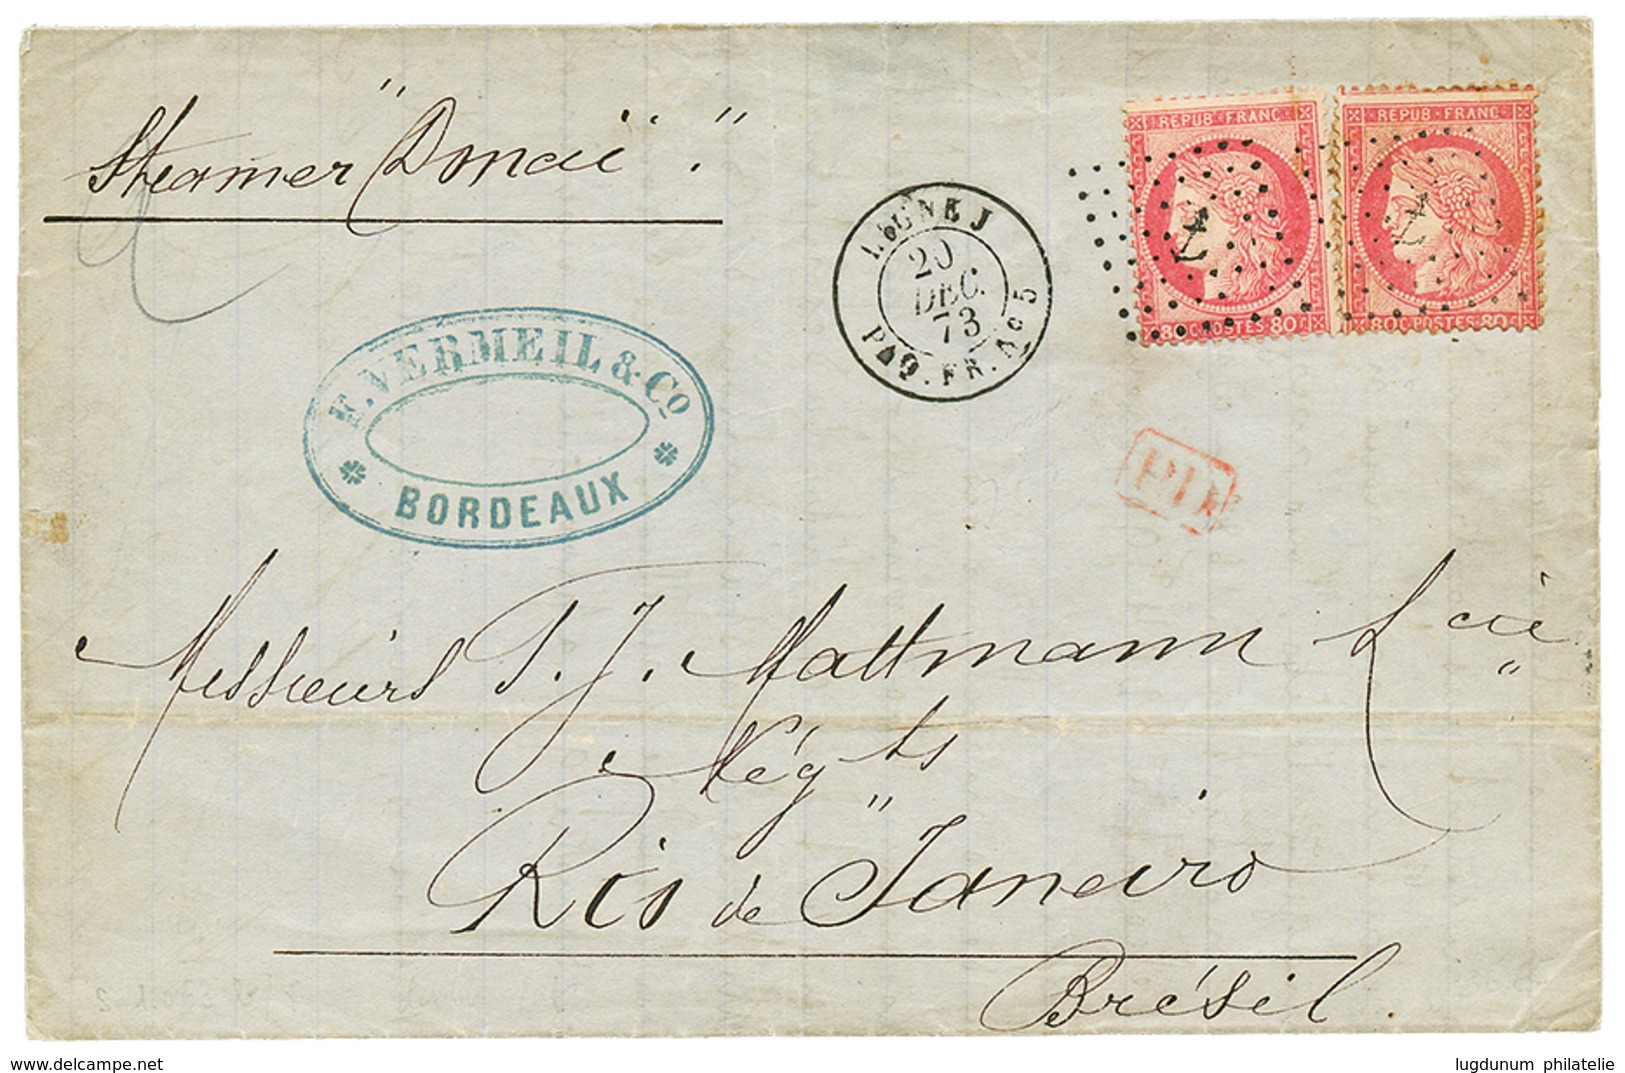 Steamer "Donaï".
REPUB · FRANC
REPUB · FRANC
80 C POSTES 80
80 C POSTES 80
LIGNE J
20
DEC.
73
PAQ. FR. No 5
E. VERMEIL & Co
BORDEAUX
PD
Messieurs T. J. Mattmann & Cie
Négts
Rio de Janeiro
Brésil
www.delcampe.net
lugdunum philatelie